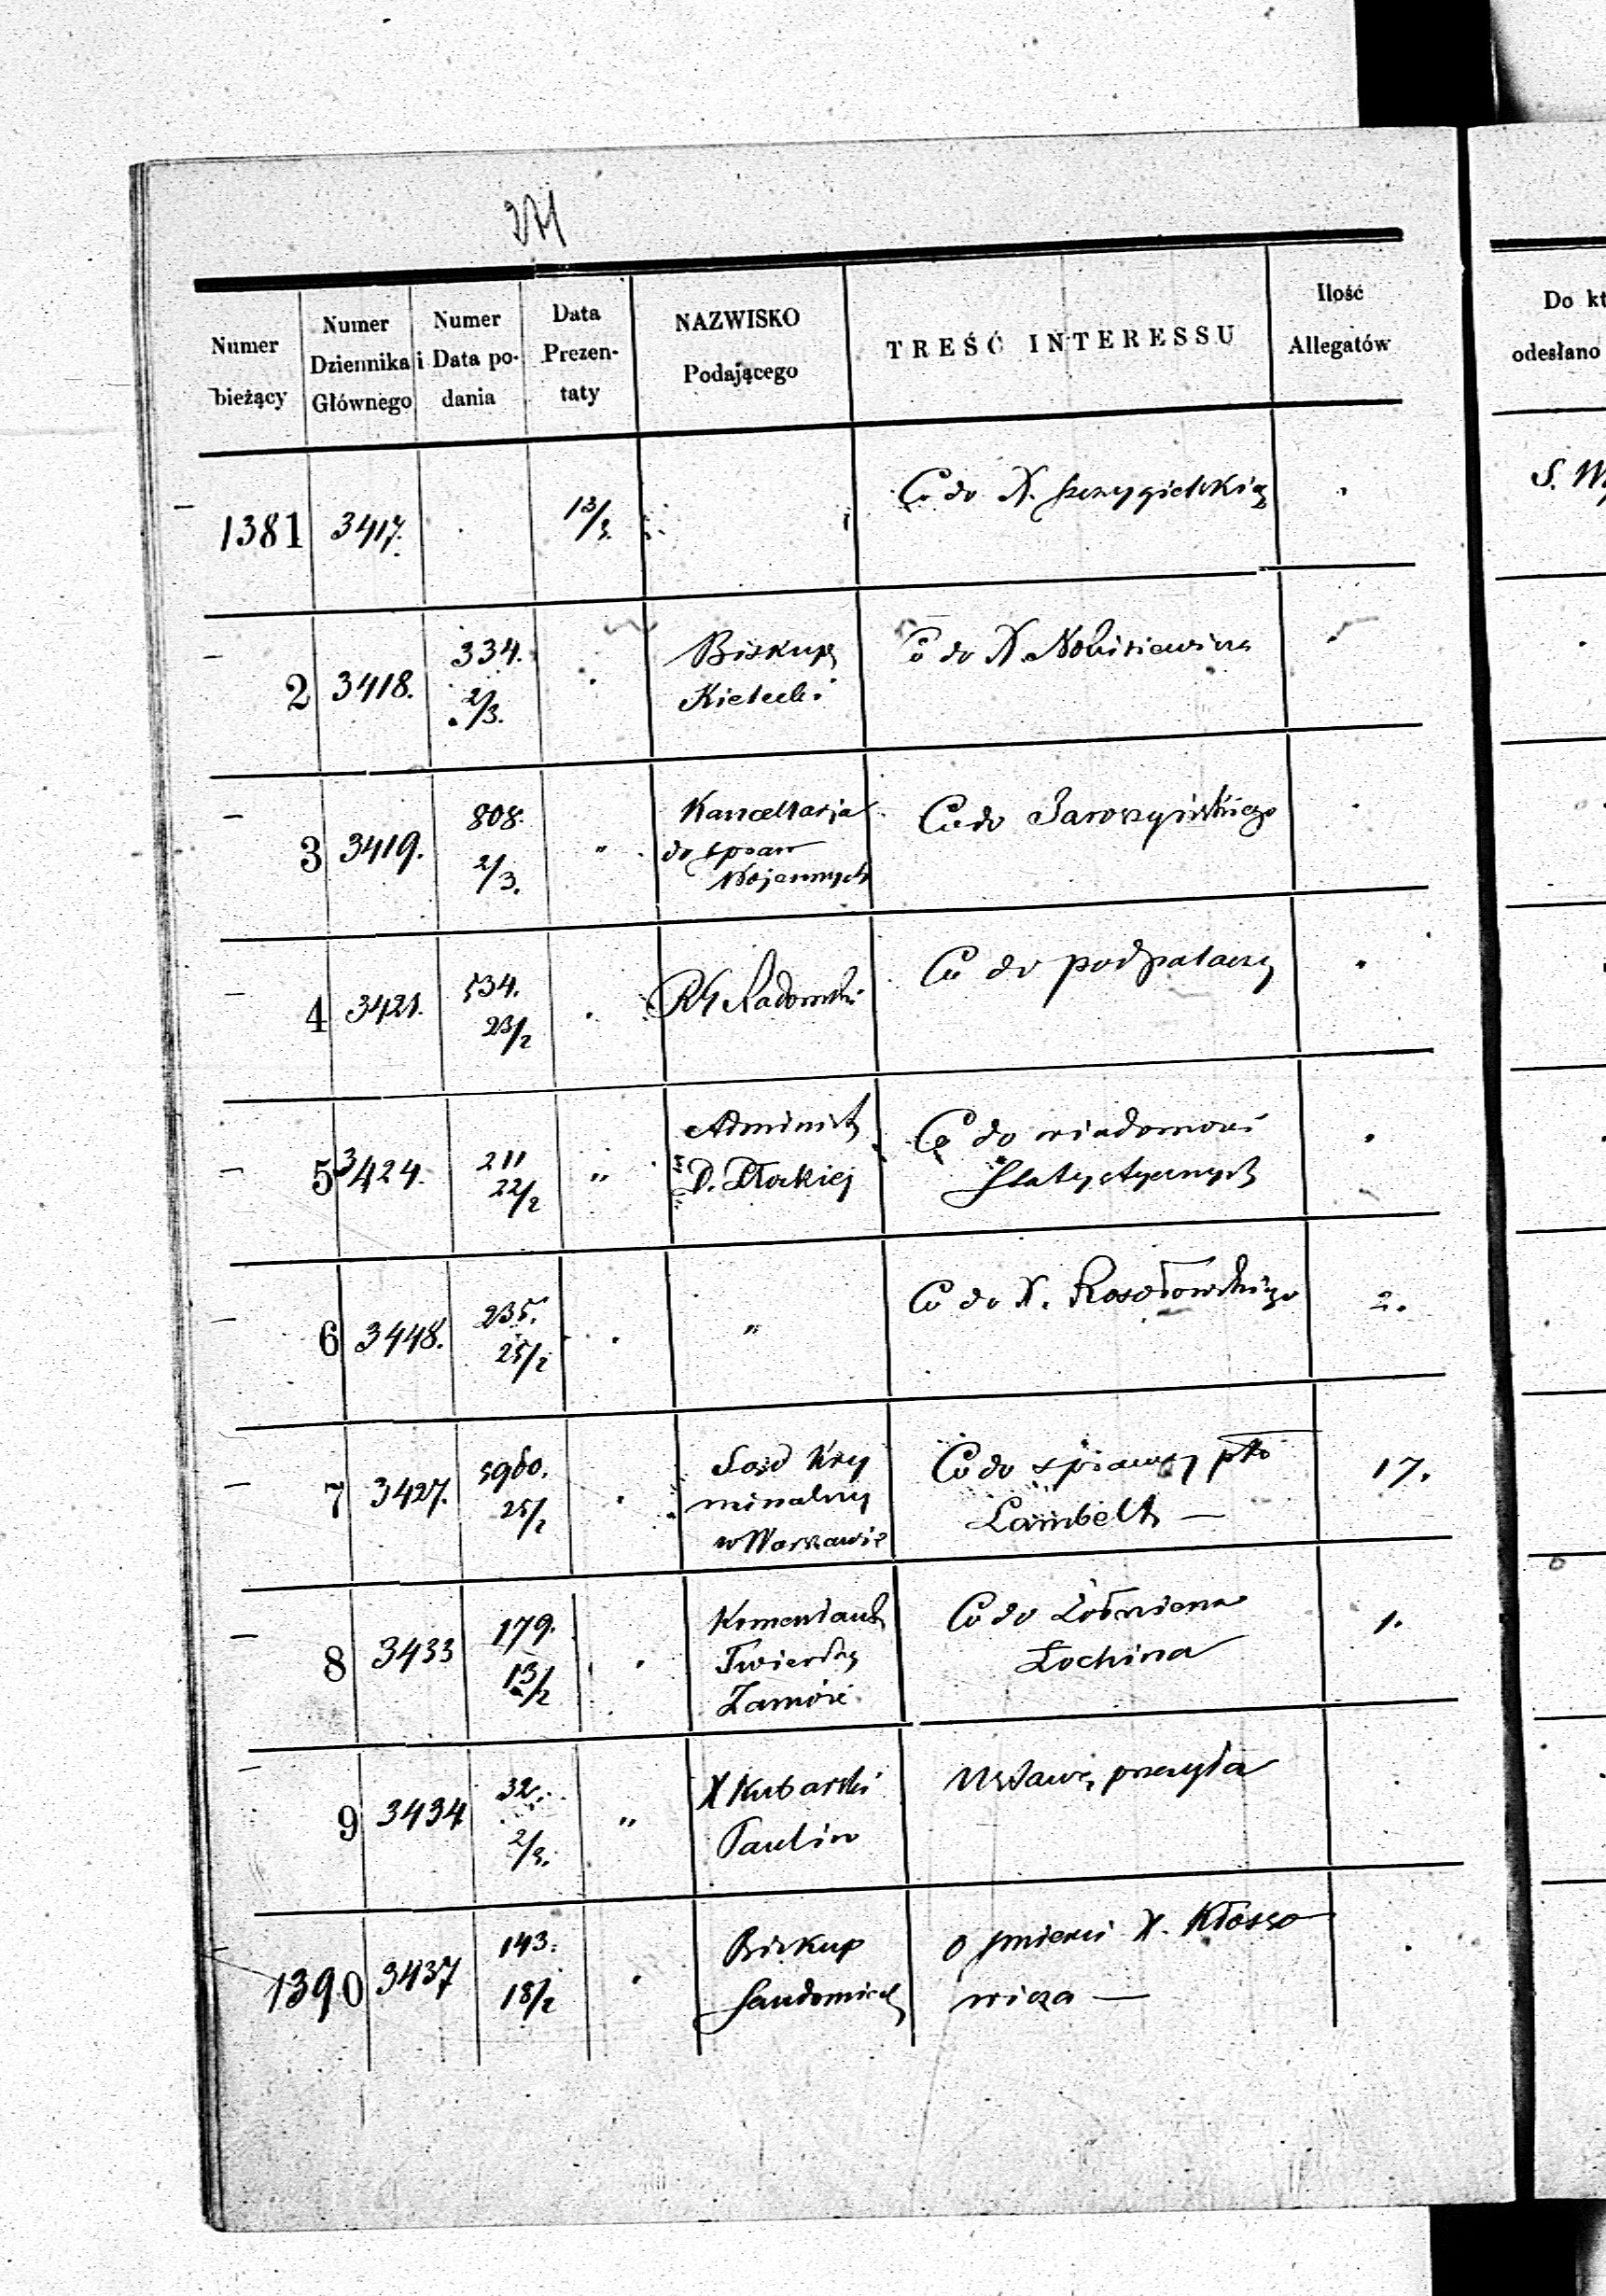 271
Numer bieżący
Numer Dziennika Głównego
Numer i Data podania
Data Prezentaty
NAZWISKO Podającego
TREŚĆ INTERESSU
Ilość Allegatów
Do kt
odesłano
1381 3417. 13/3. Co do X. Szczygielskieg
S. W
2 3418. 334. 2/3. Biskup Kielecki Co do X.
3 3419. 808. 2/3. " Kancellarja do spraw Wojennych Co do Jaroszyńskiego
4 3421. 534. 23/2 RG Radomski Co do podpalaczy
5 3424. 211 22/2 " Administ D. Płockiej Co do wiadomości Statystycznych
6 3448. 235. 25/2 " Co do X. Rosołowskiego 2.
7 3427. 5960. 25/2 Sąd Kryminalny w Warszawie Co do sprawy pko Lambelt — 17.
8 3433 179. 13/2 Komendant Twierdzy Zamość Co do Łochina 1.
9 3434 32. 2/3. " X Kubarski Paulin Ustawę przesyła
1390 3437 143. 18/2 Biskup Sandomier O śmierci X. Kłossowicza —